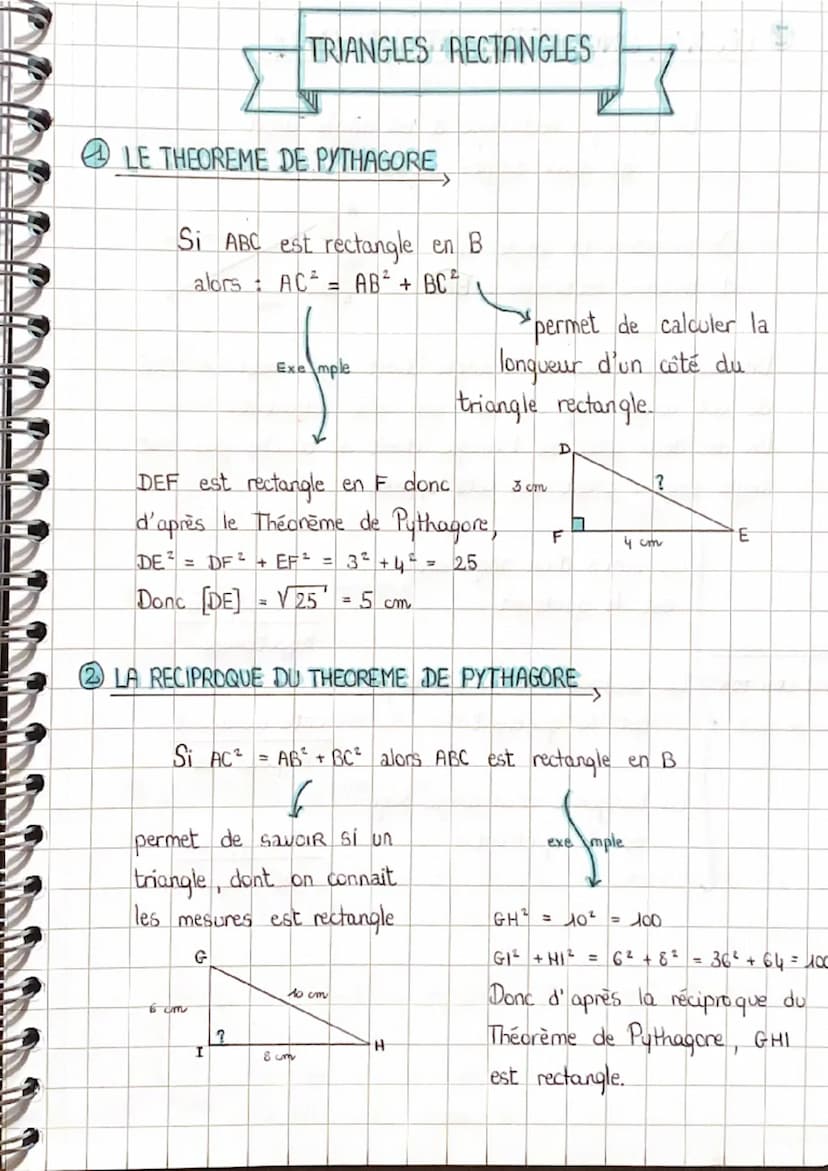 TRIANGLES RECTANGLES
1 LE THEOREME DE PYTHAGORE
Si ABC est rectangle en B
alors : AC² = AB² + BC²
permet de calculer la
longueur d'un côté du
triangle rectangle.
Exemple
DEF est rectangle en F donc
d'après le Théorème de Pythagore,
DE² = DF² + EF² = 3² + 4² = 25
Donc [DE] = √25 = 5 cm
D
3 cm
?
F
4 cm
E
2 LA RECIPROQUE DU THEOREME DE PYTHAGORE
Si AC² = AB² + BC² alors ABC est rectangle en B
permet de savoir si un
triangle, dont on connait
les mesures est rectangle
exemple
GH² = 10² = 100
GI² + HI² = 6² + 8² = 36² + 64 = 100
Donc d'après la réciproque du
Théorème de Pythagore, GHI
est rectangle.
G
6 cm
10 cm
?
I
8 cm
H